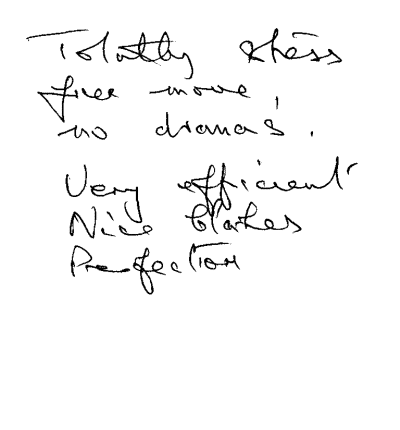 Totally stress
free move,
no drama's.
Very efficient
Nice blokes
Perfection